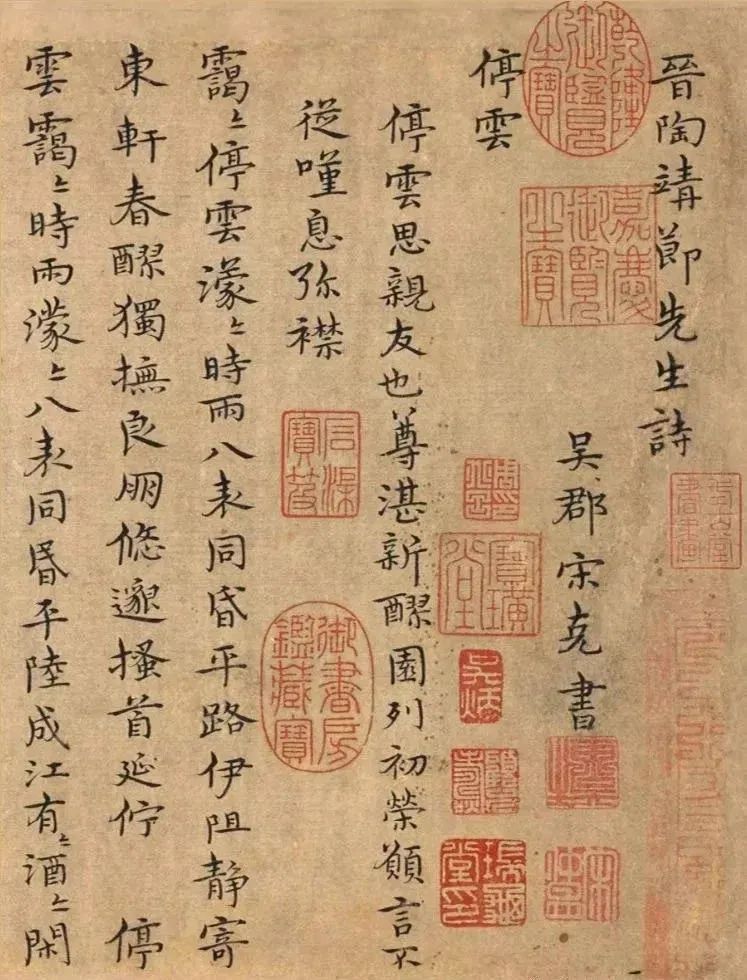 晉陶靖節先生詩
吳郡宋克書
停雲
停雲思親友也尊湛新醪園列初榮願言不
從嘆息弥襟
靄〻停雲濛〻時雨八表同昏平路伊阻靜寄
東軒春醪獨撫良朋悠邈搔首延佇 停
雲靄〻時雨濛〻八表同昏平陸成江有〻酒〻閑
乾隆御覽之寶
嘉慶御覽之寶
石渠寶笈
御書房鑑藏寶